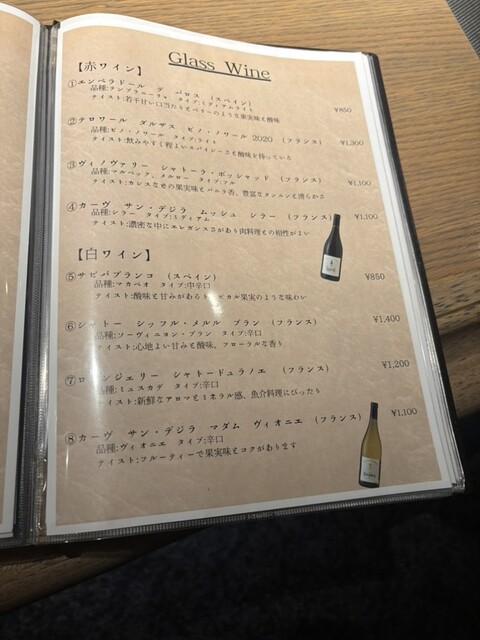 Glass Wine
【赤ワイン】
①エンペラドール デ バロス (スペイン)
品種:テンプラニーリョ タイプ:ミディアムライト
テイスト:若干甘い口当たりとベリーのような果実味と酸味
¥850
②テロワール ダルザス ピノ・ノワール 2020 (フランス)
品種:ピノ・ノワール タイプ:ライト
テイスト:飲みやすく程よいスパイシーさと酸味を持っている
¥1,300
③ヴィノヴァリー シャトーラ・ボッシャッド (フランス)
品種:マルベック、メルロー タイプ:フル
テイスト:カシスなどの果実味とバニラ香、豊富なタンニンと滑らかさ
¥1,100
④カーヴ サン・デジラ ムッシュ シラー (フランス)
品種:シラー タイプ:ミディアム
テイスト:濃密な中にエレガンスさがあり肉料理との相性がよい
¥1,100
【白ワイン】
⑤サビパブランコ (スペイン)
品種:マカベオ タイプ:中辛口
テイスト:酸味と甘みがあるト ピカル果実のような味わい
¥850
⑥シャトー シッフル・メルル ブラン (フランス)
品種:ソーヴィニヨン・ブラン タイプ:辛口
テイスト:心地よい甘みと酸味、フローラルな香り
¥1,400
⑦ロ ンジェリー シャトードュラノエ (フランス)
品種:ミュスカデ タイプ:辛口
テイスト:新鮮なアロマとミネラル感、魚介料理にぴったり
¥1,200
⑧カーヴ サン・デジラ マダム ヴィオニエ (フランス)
品種:ヴィオニエ タイプ:辛口
テイスト:フルーティーで果実味とコクがあります
¥1,100